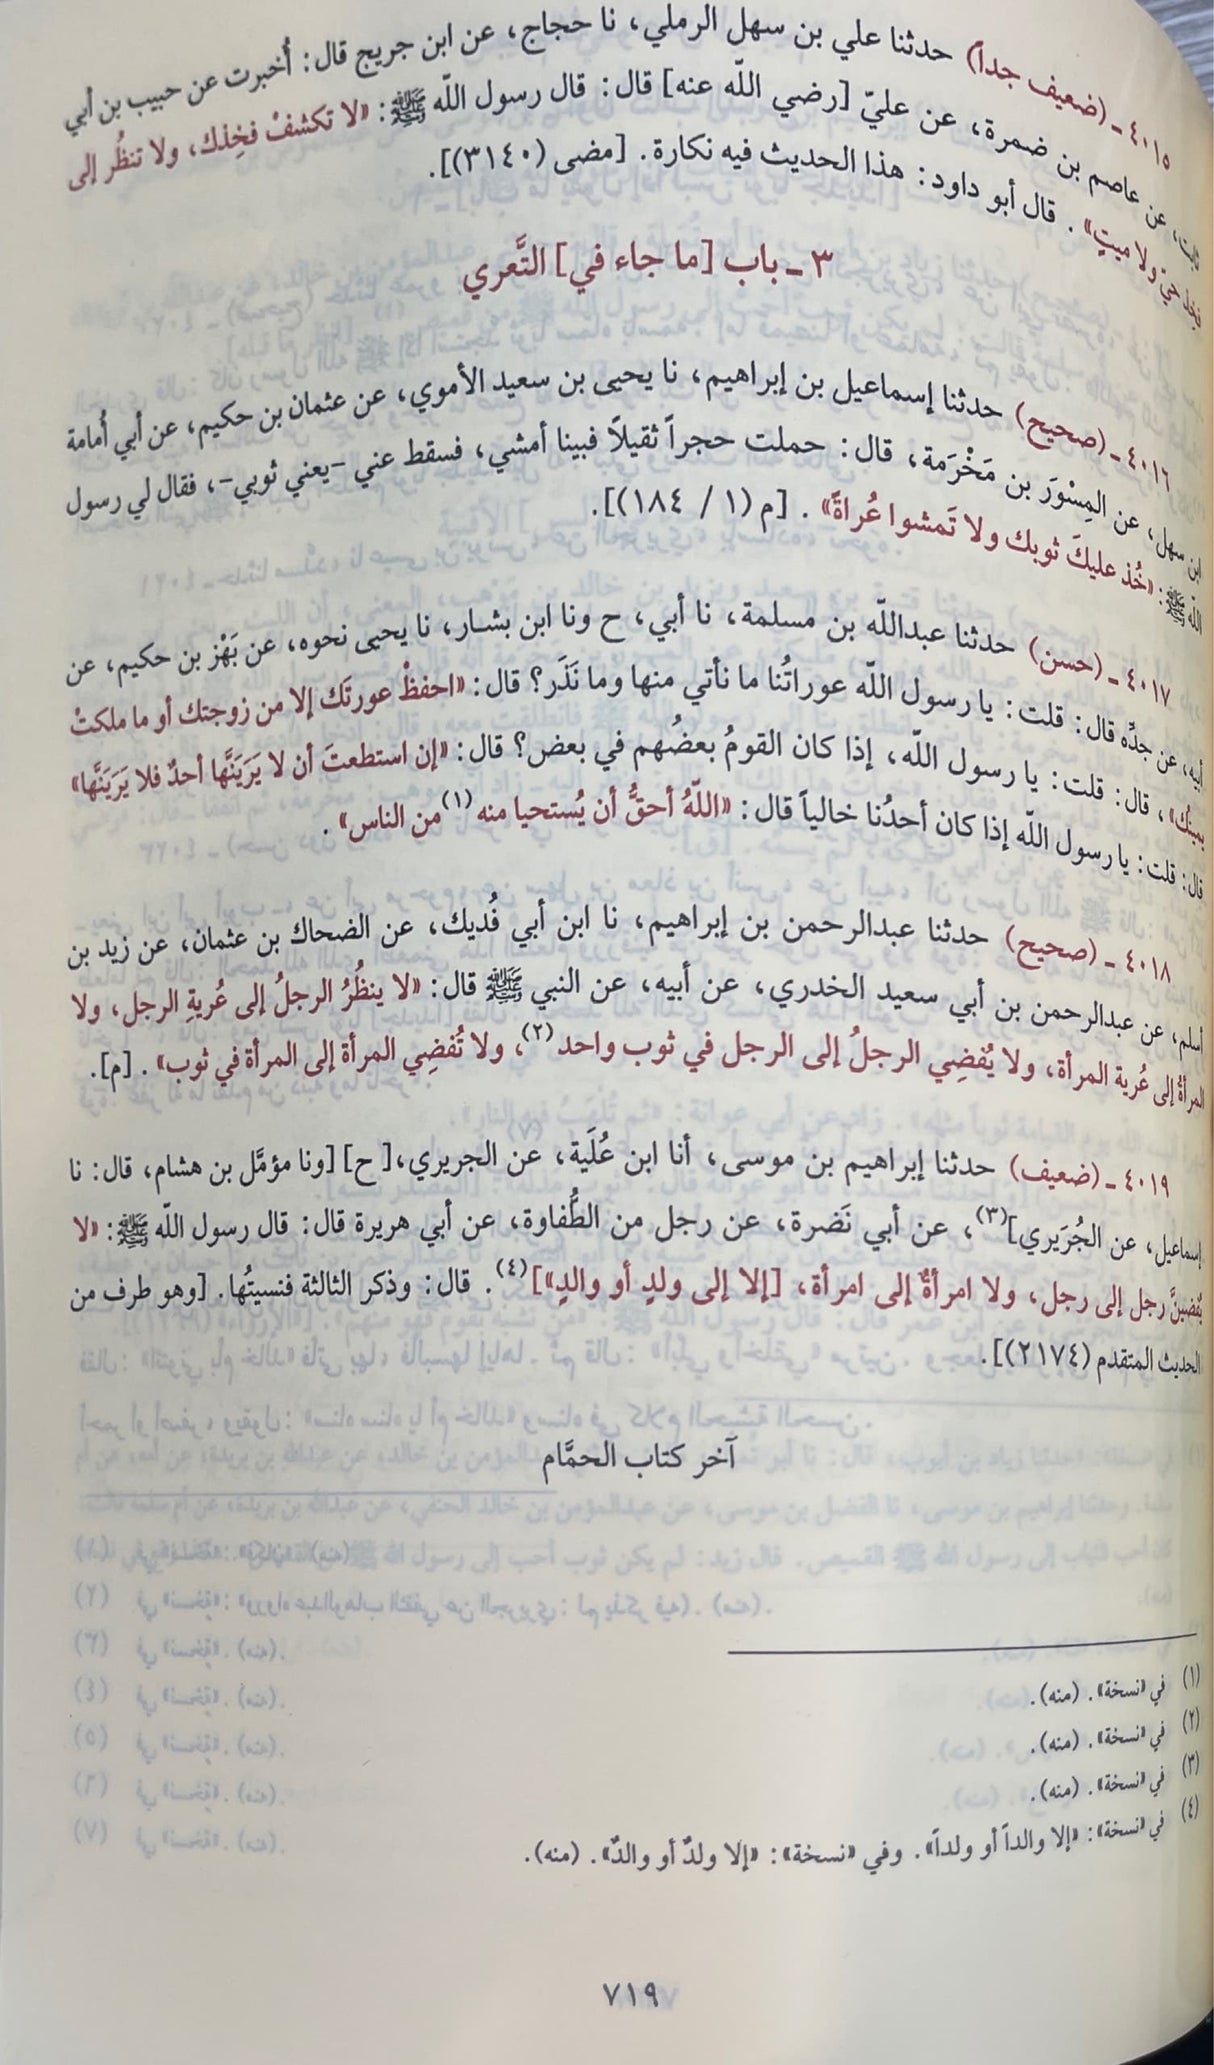 ٤٠١٥ ـ (ضعيف جداً) حدثنا علي بن سهل الرملي، نا حجاج، عن ابن جريج قال: أُخبرت عن حبيب بن أبي
ثابت، عن عاصم بن ضمرة، عن عليّ [رضي اللّه عنه] قال: قال رسول اللّه ﷺ: «لا تكشفْ فخِذك، ولا تنظُر إلى
فخِذ حيّ ولا ميتٍ» . قال أبو داود: هذا الحديث فيه نكارة. [مضى (٣١٤٠)].
٣ ـ باب [ما جاء في] التَّعري
٤٠١٦ ـ (صحيح) حدثنا إسماعيل بن إبراهيم، نا يحيى بن سعيد الأموي، عن عثمان بن حكيم، عن أبي أُمامة
ابن سهل، عن المِسْوَر بن مَخْرَمة، قال: حملت حجراً ثقيلاً فبينا أمشي، فسقط عني –يعني ثوبي–، فقال لي رسول
اللّه ﷺ: «خُذ عليكَ ثوبك ولا تَمشوا عُراةً» . [م (١ / ١٨٤)].
٤٠١٧ ـ (حسن) حدثنا عبداللّه بن مسلمة، نا أبي، ح ونا ابن بشـار، نا يحيى نحوه، عن بَهْز بن حكيم، عن
أبيه، عن جدِّه قال: قلت: يا رسول اللّه عوراتُنا ما نأتي منها وما نَذَر؟ قال: «احفظْ عورتَك إلا من زوجتك أو ما ملكتْ
يمينُك»، قال: قلت: يا رسول اللّه، إذا كان القومُ بعضُهم في بعض؟ قال: «إن استطعتَ أن لا يَرَيَنَّها أحدٌ فلا يَرَيَنَّها»
قال: قلت: يا رسول اللّه إذا كان أحدُنا خالياً قال: «اللّهُ أحقُّ أن يُستحيا منه (١) من الناس» .
٤٠١٨ ـ (صحيح) حدثنا عبدالرحمن بن إبراهيم، نا ابن أبي فُديك، عن الضحاك بن عثمان، عن زيد بن
أسلم، عن عبدالرحمن بن أبي سعيد الخدري، عن أبيه، عن النبي ﷺ قال: «لا ينظُرُ الرجلُ إلى عُريةِ الرجل، ولا
المرأةُ إلى عُرية المرأة، ولا يُفضِي الرجلُ إلى الرجل في ثوب واحد (٢)، ولا تُفضِي المرأة إلى المرأة في ثوب» . [م].
٤٠١٩ ـ (ضعيف) حدثنا إبراهيم بن موسى، أنا ابن عُلَية، عن الجريري،[ ح] [ونا مؤمَّل بن هشام، قال: نا
إسماعيل، عن الجُرَيري] (٣)، عن أبي نَضرة، عن رجل من الطُّفاوة، عن أبي هريرة قال: قال رسول اللّه ﷺ: «لا
يُفضِينَّ رجل إلى رجل، ولا امرأةٌ إلى امرأة، [إلا إلى ولدٍ أو والدٍ»] (٤). قال: وذكر الثالثة فنسيتُها. [وهو طرف من
الحديث المتقدم (٢١٧٤)].
آخر كتاب الحمَّام
(١) في «نسخة». (منه).
(٢) في «نسخة». (منه).
(٣) في «نسخة». (منه).
(٤) في «نسخة»: «إلا والداً أو ولداً». وفي «نسخة»: «إلا ولدٌ أو والدٌ». (منه).
٧١٩